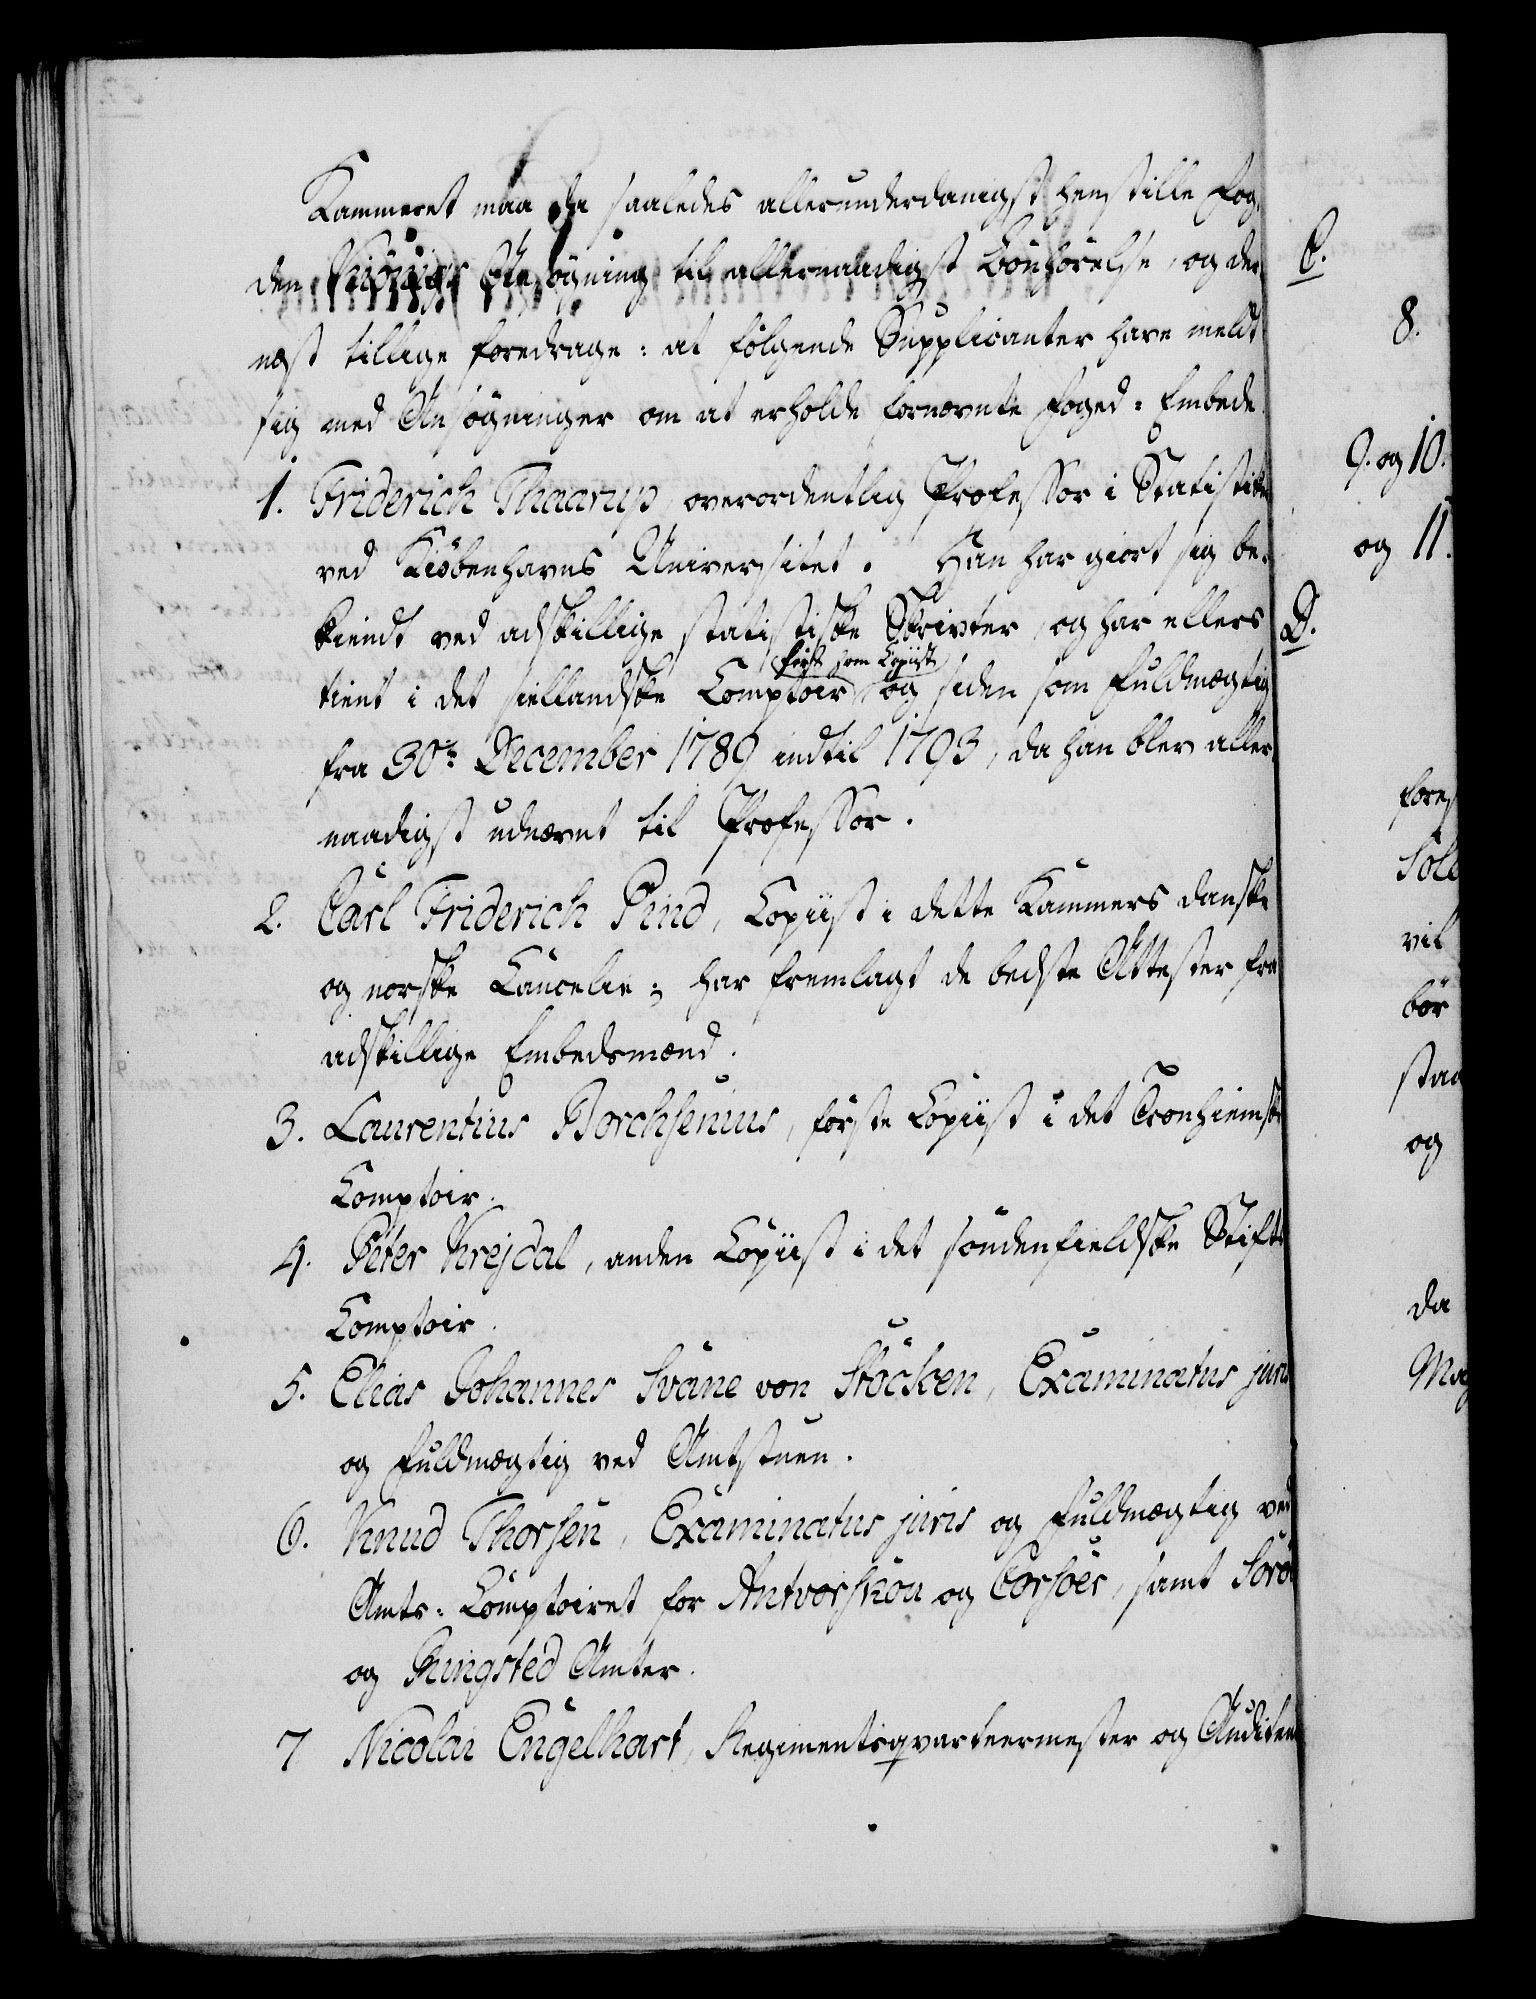 Kammeret maa da saaledes allerunderdanigst henstille Fog-
den Ansøgning til allernaadigst Bönhörelse, og der-
næst tillige foredrage: at følgende Supplicanter have meldt
sig med Ansögninger om at erholde fornævnte Foged-Embede.
1. Friderich Thaarup, overordentlig Professor i Statistik
ved Kiøbenhavns Universitet. Han har giort sig be-
kiendt ved adskillige statistiske Skrivter, og har ellers
først som Copiist
tient i det siellandske Comptoir og siden som Fuldmægtig
fra 30te December 1789 indtil 1793, da han blev aller-
naadigst udnævnt til Professor.
2. Carl Friderich Pind, Copiist i dette Kammers danske
og norske Cancelie; har fremlagt de bedste Attester fra
adskillige Embedsmænd.
3. Laurentius Borchsenius, förste Copiist i det Tronhiemske
Comptoir.
4. Peter Krejdal, anden Copiist i det söndenfieldske Stifts
Comptoir.
5. Elias Johannes Svane von Stöcken, Examinatus juris
og Fuldmægtig ved Amtstuen.
6. Knud Thorsen, Examinatus juris og Fuldmægtig ved
Amts-Comptoiret for Antvorskou og Corsöer, samt Sorö
og Ringsted Amter.
7 Nicolai Engelhart, Regimentsqvarteermester og Auditeur
C.
8.
9. og 10.
og 11.
D.
fore
vil
bör
staa
og
da